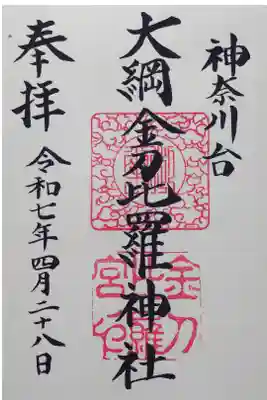 神奈川台
大綱金刀比羅神社
奉拝
令和七年四月二十八日